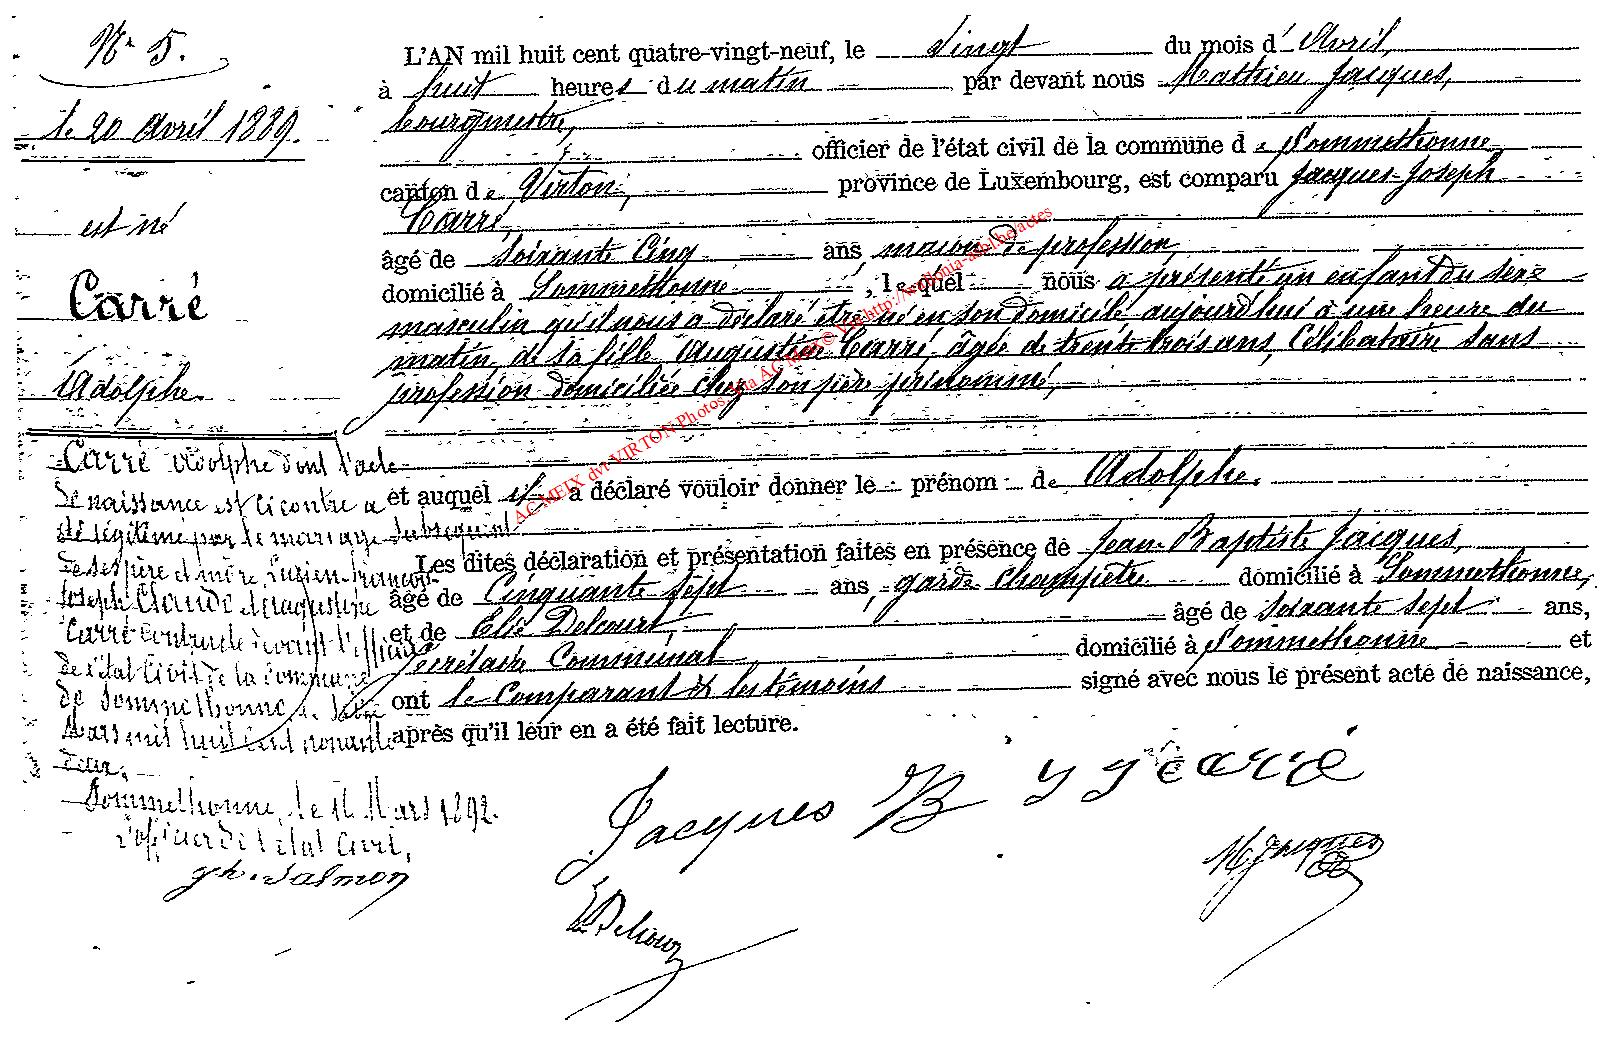 N° 5.
Le 20 Avril 1889.
est né
Carré
Adolphe.
Carré Adolphe dont l'acte
de naissance est ci contre a
été légitimé par le mariage subséquent
de ses père et mère, Lucien-François
Joseph Claude et Augustine
Carré contracté devant l'officier
de l'état Civil de la Commune
de Sommethonne le
Mars mil huit cent nonante
deux.
Sommethonne, le 16 Mars 1892.
L'officier de l'état Civil,
Jh. Salmon
L'AN mil huit cent quatre-vingt-neuf, le vingt du mois d' Avril,
à huit heures du matin par devant nous Mathieu Jacques,
bourgmestre,
officier de l'état civil de la commune de Sommethonne,
canton de Virton, province de Luxembourg, est comparu Jacques-Joseph
Carré,
âgé de soixante Cinq ans, maçon de profession,
domicilié à Sommethonne, lequel nous a présenté un enfant du sexe
masculin qu'il nous a déclaré être né en son domicile aujourd'hui à une heure du
matin, de sa fille Augustine Carré, âgée de trente trois ans, Célibataire sans
profession domiciliée chez son père prénommé,
et auquel il a déclaré vouloir donner le prénom de Adolphe.
Les dites déclaration et présentation faites en présence de Jean-Baptiste Jacques,
âgé de Cinquante sept ans, garde champêtre domicilié à Sommethonne,
et de Elie Delcourt, âgé de soixante sept ans,
secrétaire Communal domicilié à Sommethonne et
ont le comparant & les témoins signé avec nous le présent acte de naissance,
après qu'il leur en a été fait lecture.
Jacques JB JJ Carré
M. Jacques
AC MEIX dvt VIRTON Photos via AC Meix © Via http://wallonia-asbl.be/actes